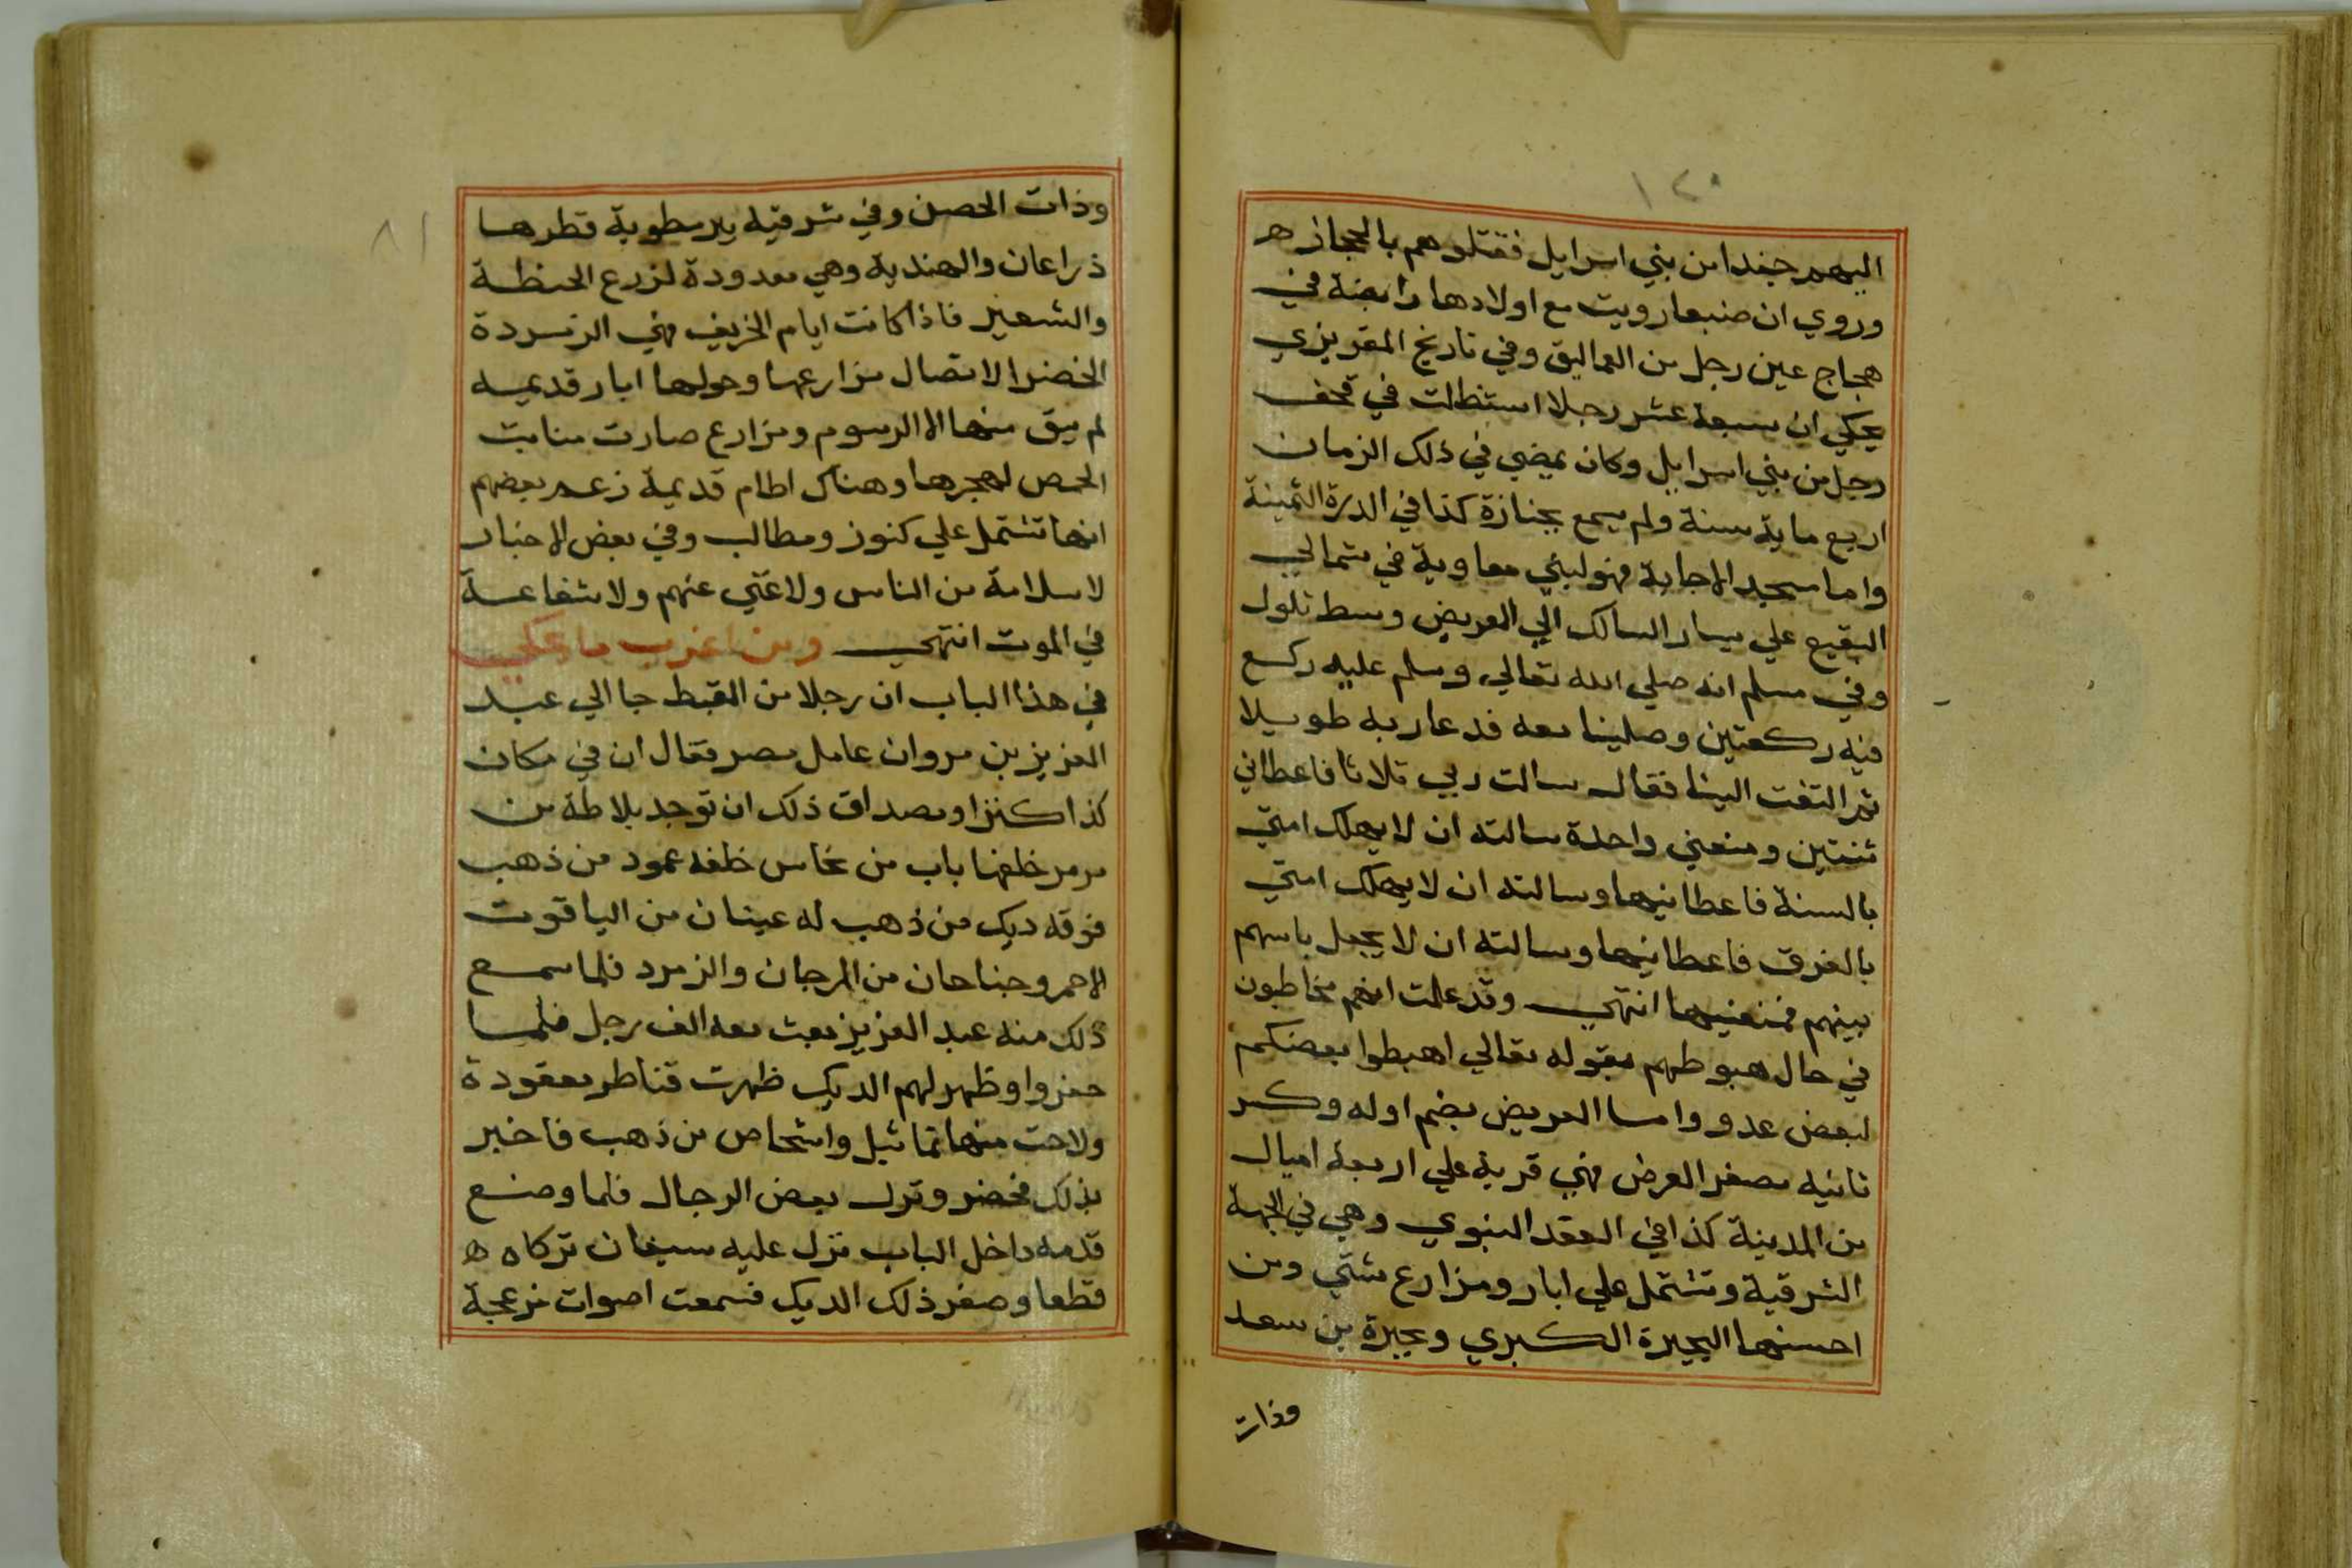 ١٢٠
اليهم جندا من بني اسرايل فقتلوهم بالحجاز ه
وروي ان ضبعا رويت مع اولادها رابضة في
حجاج عين رجل من العماليق وفي تاريخ المقريزي
يحكي ان سبعة عشر رجلا استظلت في قحف
رجل من بني اسرايل وكان يمضي في ذلك الزمان
اربع ماية سنة ولم يسمع بجنازة كذا في الدرة الثمينة
واما مسجد الاجابة فهو لبني معاوية في شمالي
البقيع علي يسار السالك الي العريض وسط تلول
وفي مسلم انه صلي الله تعالي وسلم عليه ركع
فيه ركعتين وصلينا معه فدعا ربه طويلا
ثم التفت الينا فقال سالت ربي ثلاثا فاعطاني
ثنتين ومنعني واحدة سالته ان لا يهلك امتي
بالسنة فاعطانيها وسالته ان لا يهلك امتي
بالغرق فاعطانيها وسالته ان لا يجعل باسهم
بينهم فمنعنيها انتهي وقد علمت انهم مخاطبون
في حال هبوطهم بقوله تعالي اهبطوا بعضكم
لبعض عدو واما العريض بضم اوله وكسر
ثانيه مصغر العرض فهي قرية علي اربعة اميال
من المدينة كذا في العقد النبوي وهي في الجهة
الشرقية وتشتمل علي ابار ومزارع شتي ومن
احسنها البحيرة الكبري وبحيرة بن سعد
وذات
٨١
وذات الحصن وفي شرقيه بير مطوية قطرها
ذراعان والهندية وهي معدودة لزرع الحنظة
والشعير فاذا كانت ايام الخريف فهي الزمردة
الخضرا لاتصال مزارعها وحولها ابار قديمه
لم يبق منها الا الرسوم ومزارع صارت منابت
الحمص لهجرها وهناك اطام قديمة زعم بعضهم
انها تشتمل علي كنوز ومطالب وفي بعض الاخبار
لا سلامة من الناس ولا غني عنهم ولا شفاعة
في الموت انتهي ومن اغرب ما يحكي
في هذا الباب ان رجلا من القبط جا الي عبد
العزيز بن مروان عامل مصر فقال ان في مكان
كذا كنزا ومصداق ذلك ان توجد بلاطة من
مرمر خلفها باب من نحاس خلفه عمود من ذهب
فوقه ديك من ذهب له عينان من الياقوت
الاحمر وجناحان من المرجان والزمرد فلما سمع
ذلك منه عبد العزيز بعث معه الف رجل فلما
حفروا وظهر لهم الديك ظهرت قناطر معقودة
ولاحت منها تماثيل واشخاص من ذهب فاخبر
بذلك فحضر ونزل بعض الرجال فلما وضع
قدمه داخل الباب نزل عليه سيفان تركاه ه
قطعا وصفر ذلك الديك فسمعت اصوات مزعجة